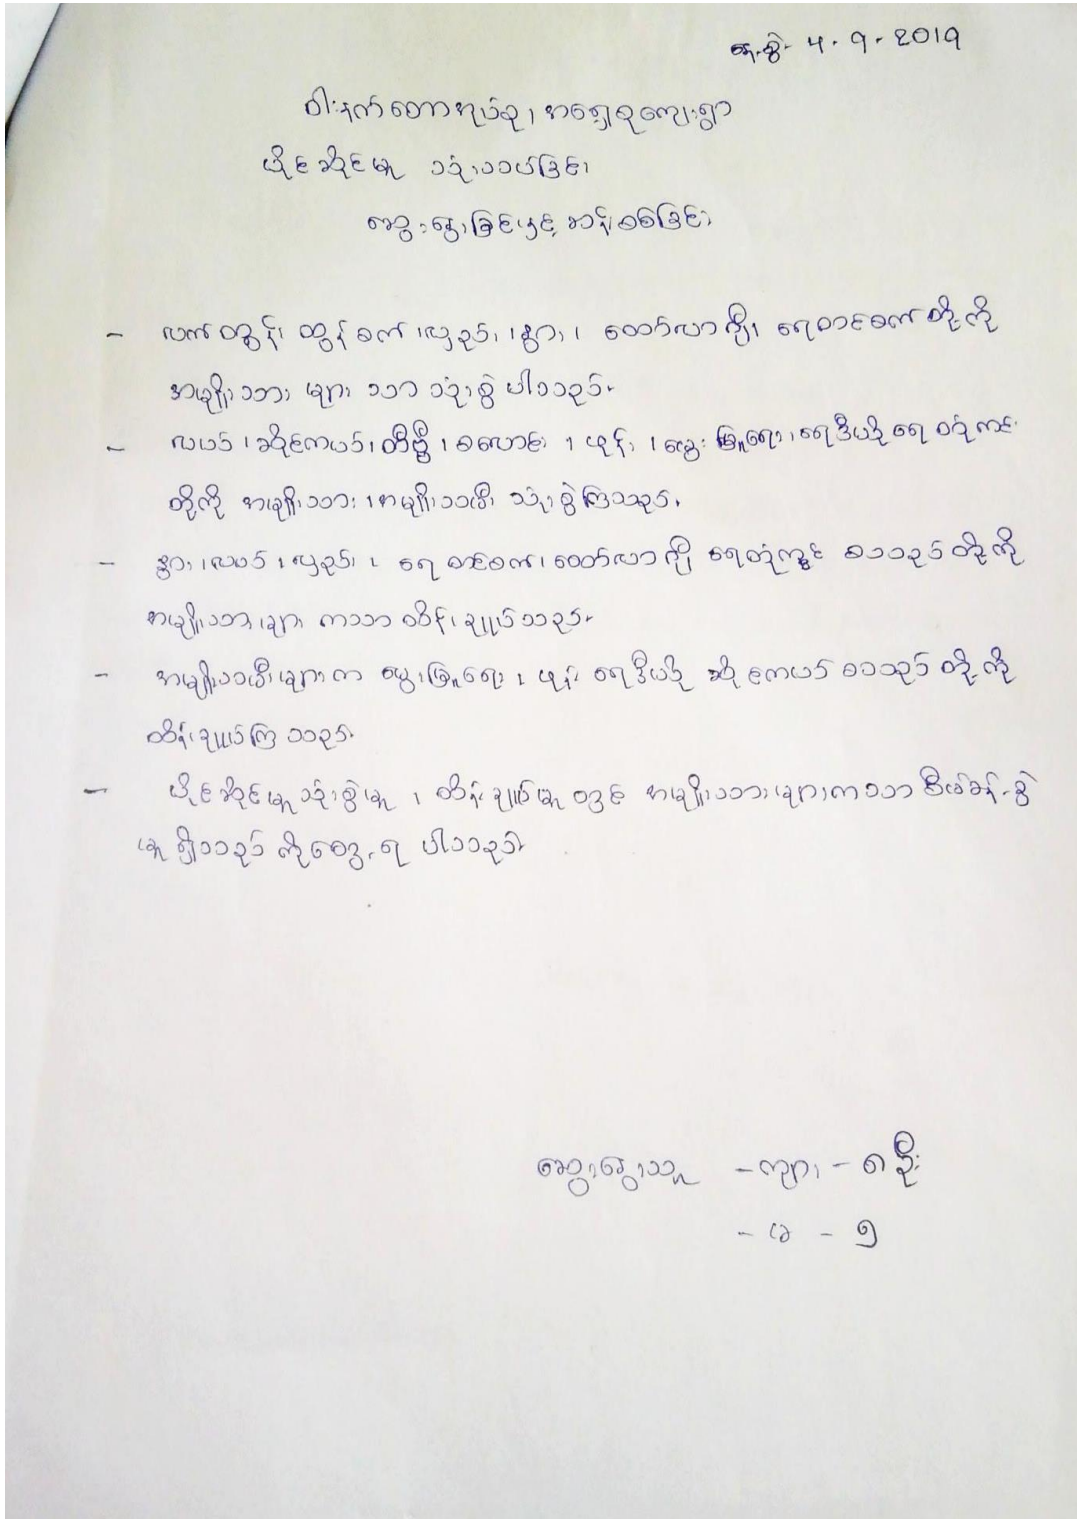 ရက်စွဲ - 4 - 9 - 2019
ဝါးနက်တောအုပ်စု၊ အရှေ့စုကျေးရွာ
ပိုင်ဆိုင်မှု သုံးသပ်ခြင်း
ဆွေးနွေးခြင်းနှင့် ဆန်းစစ်ခြင်း
- လက်တွန်း ထွန်စက် ၊ လှည်း ၊ နွား ၊ ထော်လာဂျီ၊ ရေတင်စက် တို့ကို
အမျိုးသား များ သာ သုံးစွဲ ပါသည်။
- လယ် ၊ ဆိုင်ကယ်၊ တီဗွီ ၊ စလောင်း ၊ ဖုန်း ၊ မွေးမြူရေး ၊ ရေဒီယို ရေတွင်းကန်
တို့ကို အမျိုးသား ၊ အမျိုးသမီး သုံးစွဲကြသည်။
- နွား ၊ လယ် ၊ လှည်း ၊ ရေတင်စက်၊ ထော်လာဂျီ ရေတွင်း စသည် တို့ကို
အမျိုးသားများ ကသာ ထိန်းချုပ်သည်။
- အမျိုးသမီးများက မွေးမြူရေး ၊ ဖုန်း ရေဒီယို ဆိုင်ကယ် စသည် တို့ကို
ထိန်းချုပ်ကြ သည်။
- ပိုင်ဆိုင်မှု သုံးစွဲမှု ၊ ထိန်းချုပ်မှု တွင် အမျိုးသားများကသာ စီမံခန့်ခွဲ
မှု ရှိသည် ကိုတွေ့ရ ပါသည်။
ဆွေးနွေးသူ - ကျား - ၈ ဦး
- မ - ၅